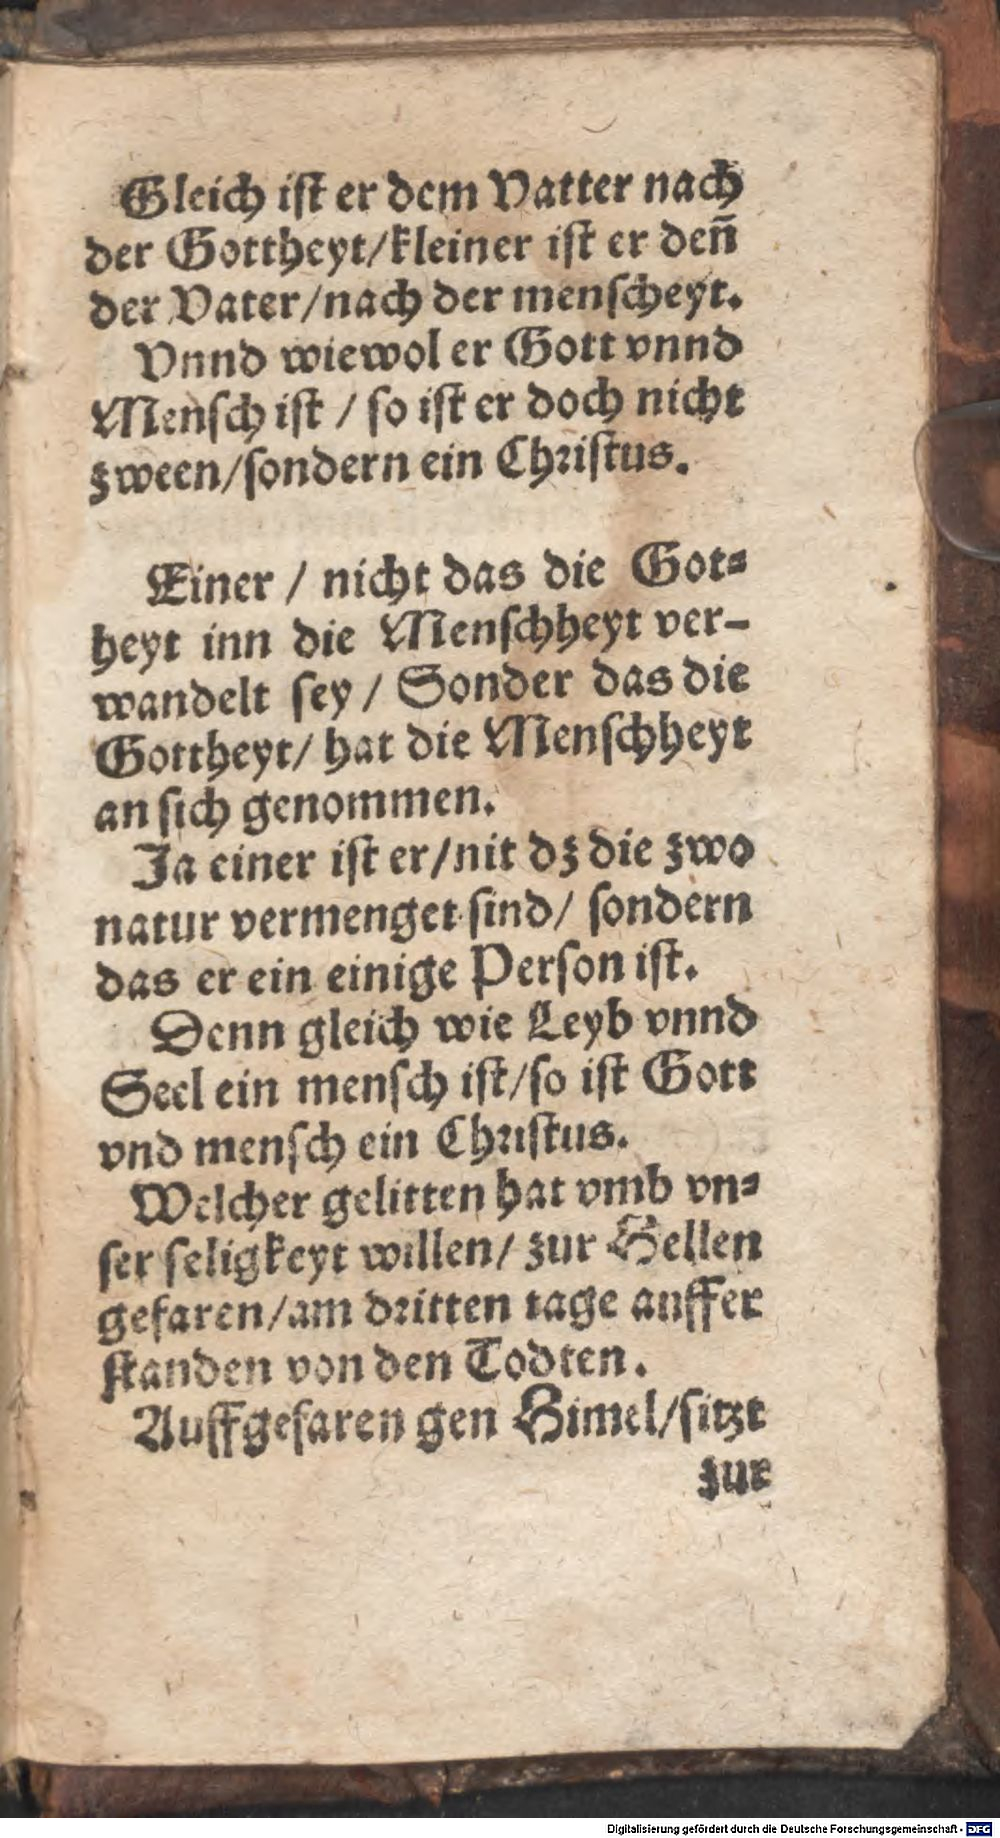 Gleich ist er dem Vatter nach
der Gottheyt/kleiner ist er deñ
der Vater/nach der menscheyt.
Vnnd wiewol er Gott vnnd
Mensch ist / so ist er doch nicht
zween/sondern ein Christus.
Einer / nicht das die Got⸗
heyt inn die Menschheyt ver-
wandelt sey / Sonder das die
Gottheyt/ hat die Menschheyt
an sich genommen.
Ja einer ist er/nit dz die zwo
natur vermenget sind/ sondern
das er ein einige Person ist.
Denn gleich wie Leyb vnnd
Seel ein mensch ist/so ist Gott
vnd mensch ein Christus.
Welcher gelitten hat vmb vn⸗
ser seligkeyt willen/ zur Hellen
gefaren/am dritten tage auffer
standen von den Todten.
Auffgefaren gen Himel/sitzt
zur
Digitalisierung gefördert durch die Deutsche Forschungsgemeinschaft - DFG